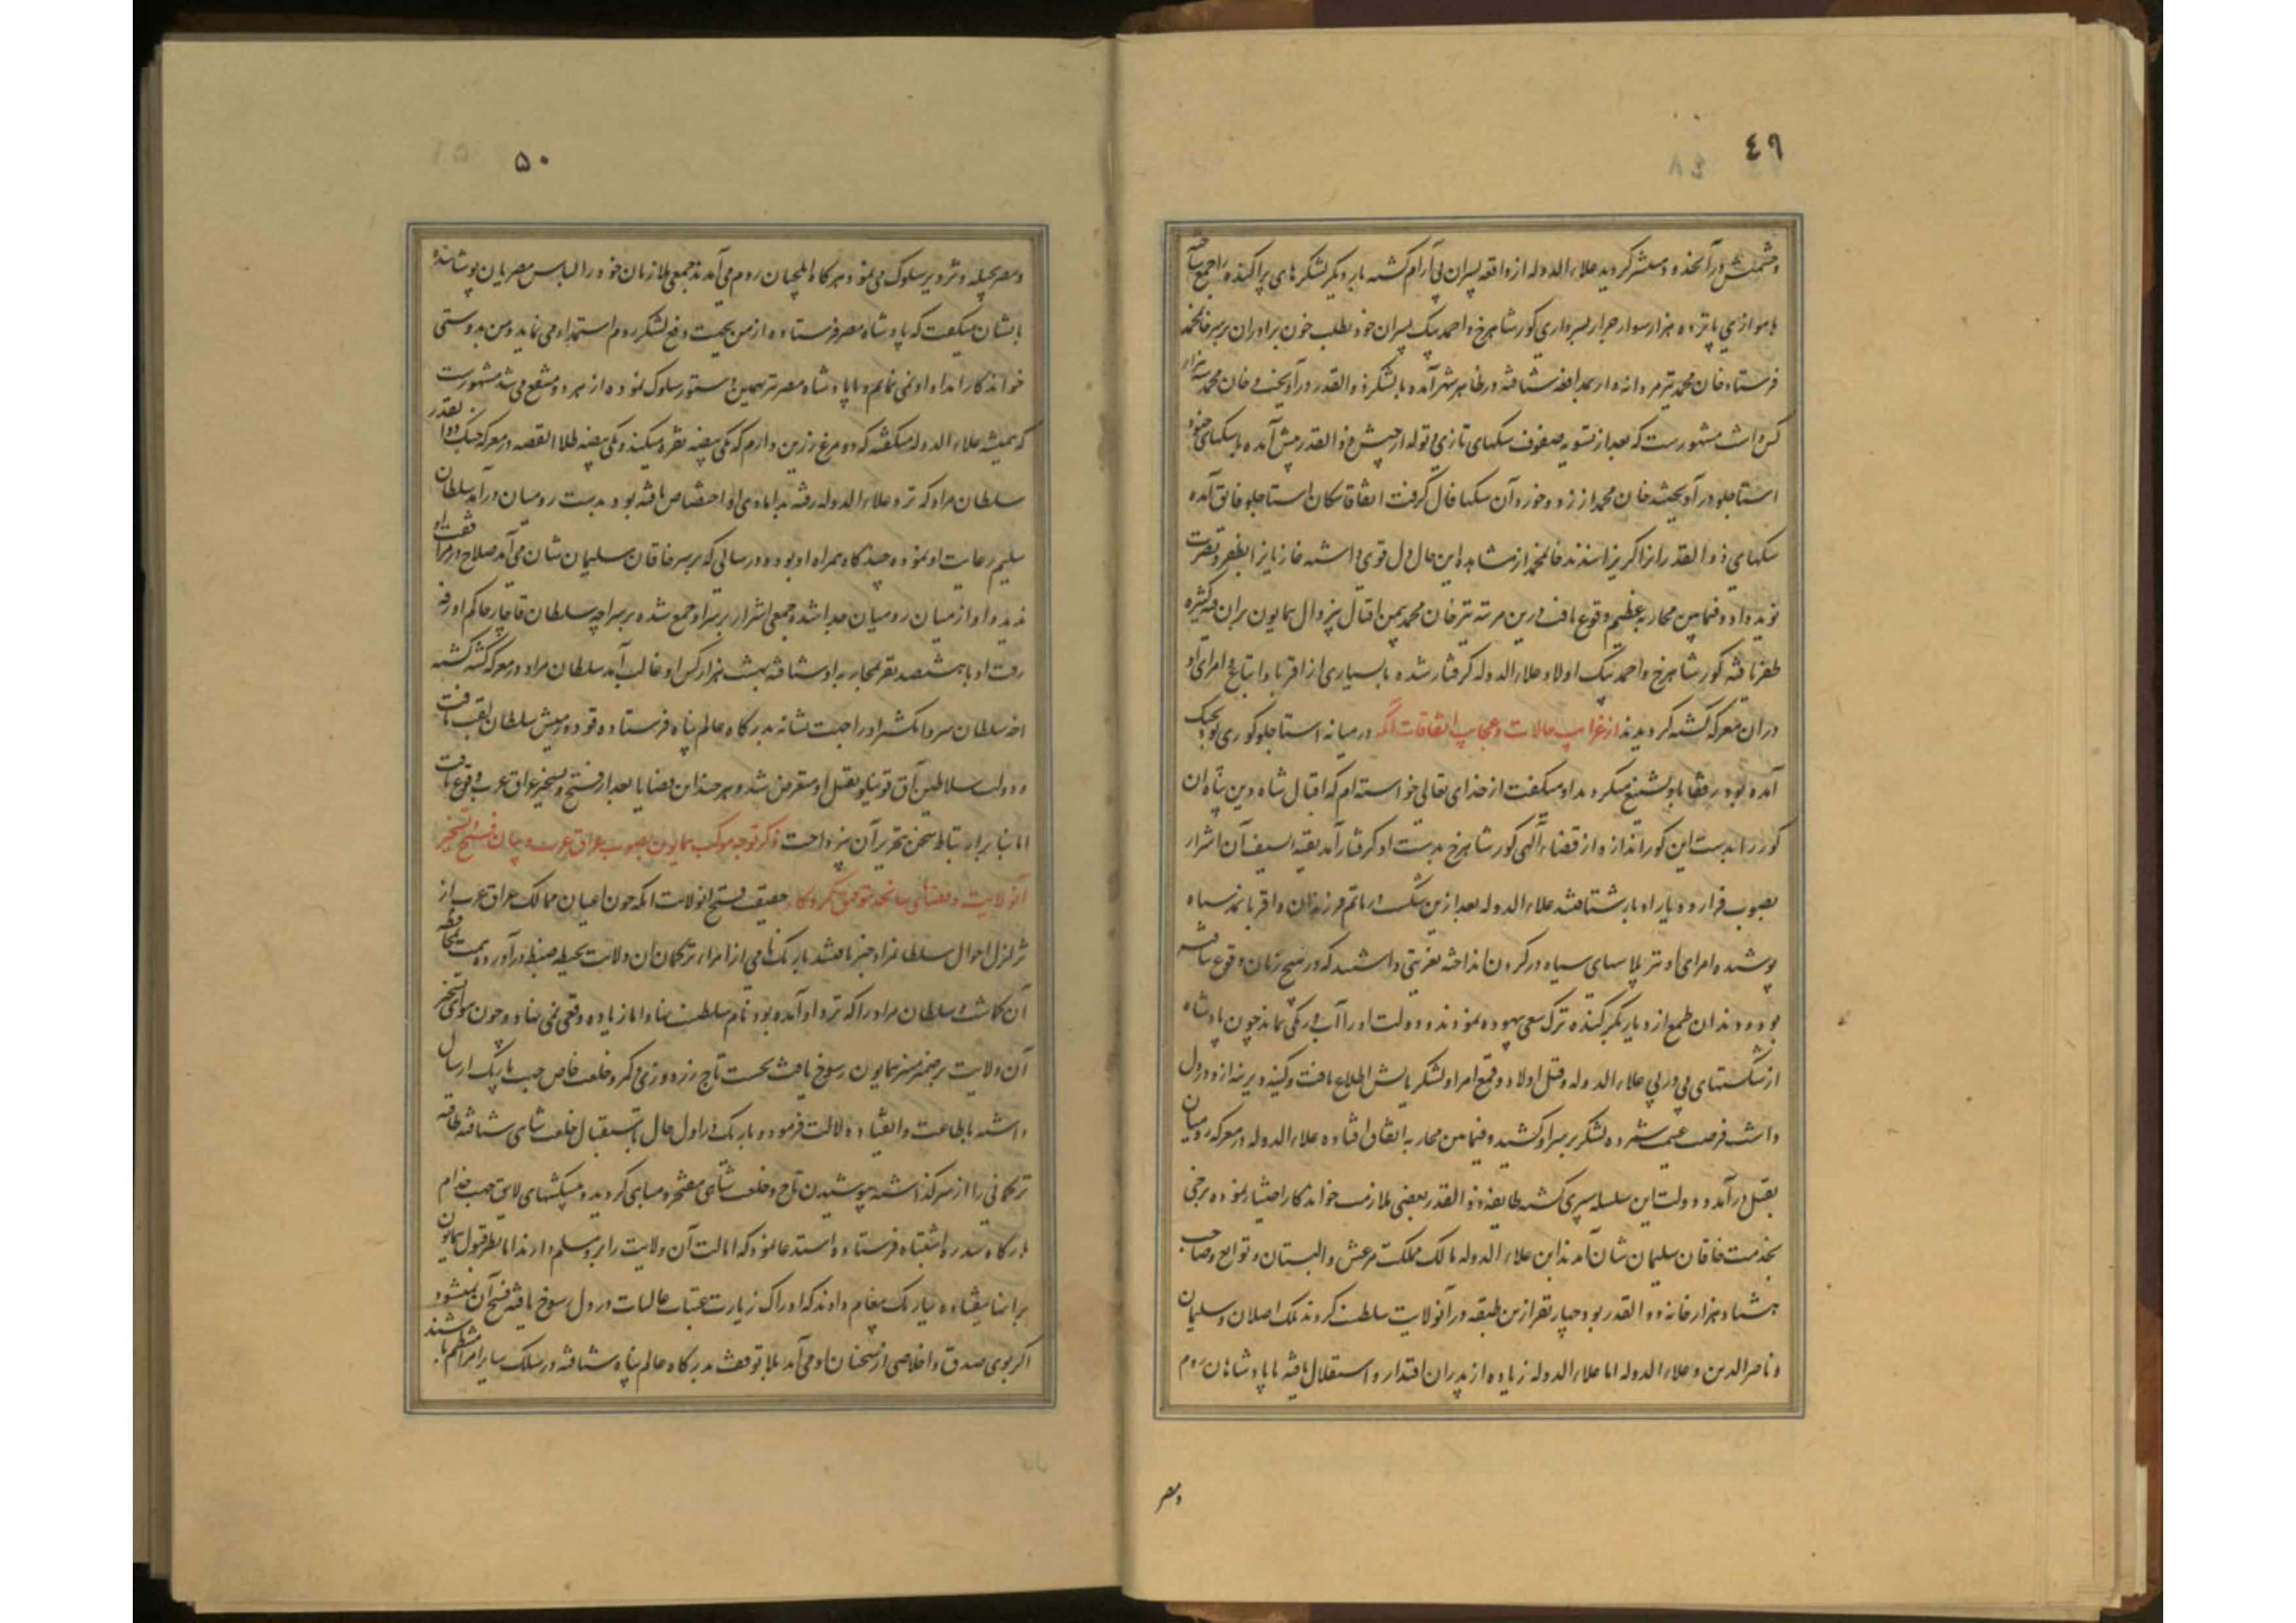 ٤٩
وحشمتش درآنحدود منتشر گردید علاء الدوله از واقعه پسران بی آرام گشته بار دیگر لشکرهای پراکنده را جمع ساخته
با موازی پانزده هزار سوار جرار بسرداری کور شاهرخ و احمد بیک پسران خود بطلب خون برادران بر سر خانمحمد
فرستاد خان محمد نیز مردانه وار بمدافعه شتافته در ظاهر شهر آمده با لشکر ذوالقدر درآویخت و خان محمد سه هزار
کس داشت مشهورست که بعد از تسویه صفوف سکهای تازی و توله از جیش ذوالقدر پیش آمده با سکهای جنود
استاجلو درآویختند خان محمد از زد و خورد آن سکها فال گرفت اتفاقا سکان استاجلو فایق آمده
سکهای ذوالقدر را گریزانیدند خانمحمد از مشاهده این حال دل قوی داشته غازیانرا بظفر و نصرت
نوید داد و فیمابین محاربه عظیم وقوع یافت درین مرتبه نیز خان محمد بیمن اقبال بیزوال همایون بران فئه کثیره
ظفر یافته کور شاهرخ و احمد بیک اولاد علاء الدوله گرفتار شده با بسیاری از اقربا و اتباع و امرای او
در ان معرکه کشته گردیدند از غرایب حالات و عجایب اتفاقات آنکه در میانه استاجلو کوری لوچک
آمده بود رفقا باو تشنیع میکردند او میگفت از خدای تعالی خواسته‌ام که اقبال شاه دین پناه ان
کور را بدست این کور اندازد از قضاء الهی کور شاهرخ بدست او گرفتار آمد بقیة السیف آن اشرار
بصوب فرار و دیار ادبار شتافتند علاء الدوله بعد ازین شکست در ماتم فرزندان و اقربا نمد سیاه
پوشیده امرای او نیز پلاسهای سیاه در گردن انداخته تعزیتی داشتند که در هیچ زمان وقوع نیافته
بود و دندان طمع از دیاربکر کنده ترک سعی بیهوده نمودند و دولت او را آب و رنگی نماند چون پادشاه
از شکستهای پی در پی علاء الدوله و قتل اولاد و قمع امرا و لشکریانش اطلاع یافت و کینه دیرینه ازو در دل
داشت فرصت غنیمت شمرده لشکر بر سر او کشید و فیمابین محاربه اتفاق افتاده علاء الدوله در معرکه رومیان
بقتل درآمد و دولت این سلسله سپری گشته طایفه ذوالقدر بعضی ملازمت خواندکار اختیار نموده برخی
بخدمت خاقان سلیمان شان آمدند این علاء الدوله مالک مملکت مرعش و البستان و توابع و صاحب
هشتاد هزار خانه ذوالقدر بود چهار نفر ازین طبقه در آنولایت سلطنت کردند ملک اصلان و سلیمان
و ناصرالدین و علاء الدوله اما علاء الدوله زیاده از پدران اقتدار و استقلال یافته با پادشاهان روم
ومصر
۵۰
ومصر بحیله و تزویر سلوک می نمود هرگاه ایلچیان روم می آمدند جمعی ملازمان خود را لباس مصریان پوشانیده
بایشان میگفت که پادشاه مصر فرستاده از من بجهت دفع لشکر روم استمداد می نماید و من بدوستی
خواندکار امداد او نمی نمایم و با پادشاه مصر نیز همین دستور سلوک نموده از هر دو منتفع می شد مشهورست
که همیشه علاء الدوله میگفته که دو مرغ زرین دارم که یکی بیضه نقره میکند و یکی بیضه طلا القصه در معرکه جنگ ذوالقدر
سلطان مراد که نزد علاء الدوله رفته بدامادی او اختصاص یافته بود بدست رومیان درآمد سلطان
سلیم رعایت او نموده چندگاه همراه او بود و در سالی که بر سر خاقان سلیمان شان می آمد صلاح در مرافقت او
ندید و او از میان رومیان جدا شد و جمعی اشرار بر سر او جمع شده بر سر اچه سلطان قاجار حاکم اورفه
رفت او با هشتصد نفر بمحاربه او شتافته بهشت هزار کس او غالب آمد سلطان مراد در معرکه کشته گشته
اچه سلطان سر و انگشتر او را جهت نشانه بدرگاه عالم پناه فرستاده قودورمیش سلطان لقب یافت
و دولت سلاطین آق قوینلو بقتل او منقرض شد و هر چند این قضایا بعد از فتح و تسخیر عراق عرب وقوع یافت
اما بنا بر ارتباط سخن بتحریر آن پرداخت ذکر توجه موکب همایون بصوب عراق عرب و بیان فتح و تسخیر
آنولایت و قضایای سانحه بتوفیق کردگار حقیقت فتح انولایت انکه چون اعیان ممالک عراق عرب از
تزلزل احوال سلطانمراد خبر یافتند باریک نامی از امراء ترکمان ان ولایت بحیطه ضبط درآورده همت بمحافظه
آن گماشت و سلطان مراد را که نزد او آمده بود نام سلطنت نهاد اما زیاده وقعی نمی نهاد و چون هوای تسخیر
آن ولایت بر ضمیر منیر همایون رسوخ یافت نخست تاج زردوزی و کمر و خلعت خاص جهت باریک ارسال
داشته باطاعت و انقیاد دلالت فرمود و باریک در اول حال باستقبال خلعت شاهی شتافته طاقیه
ترکمانی را از سر گذاشته بپوشیدن تاج و خلعت شاهی مفتخر و مباهی گردید و پیشکشهای لایق جهت خدام
درگاه سدره اشتباه فرستاده استدعا نمود که ایالت آن ولایت را برو مسلم دارند اما بنظر قبول همایون
برابر نیفتاده بباریک پیغام دادند که ادراک زیارت عتبات عالیات در دل رسوخ یافته فسخ آن نمیشود
اگر بوی صدق و اخلاصی از سخنان او می آید بلا توقف بدرگاه عالم پناه شتافته در سلک سایر امرا منتظم باشند